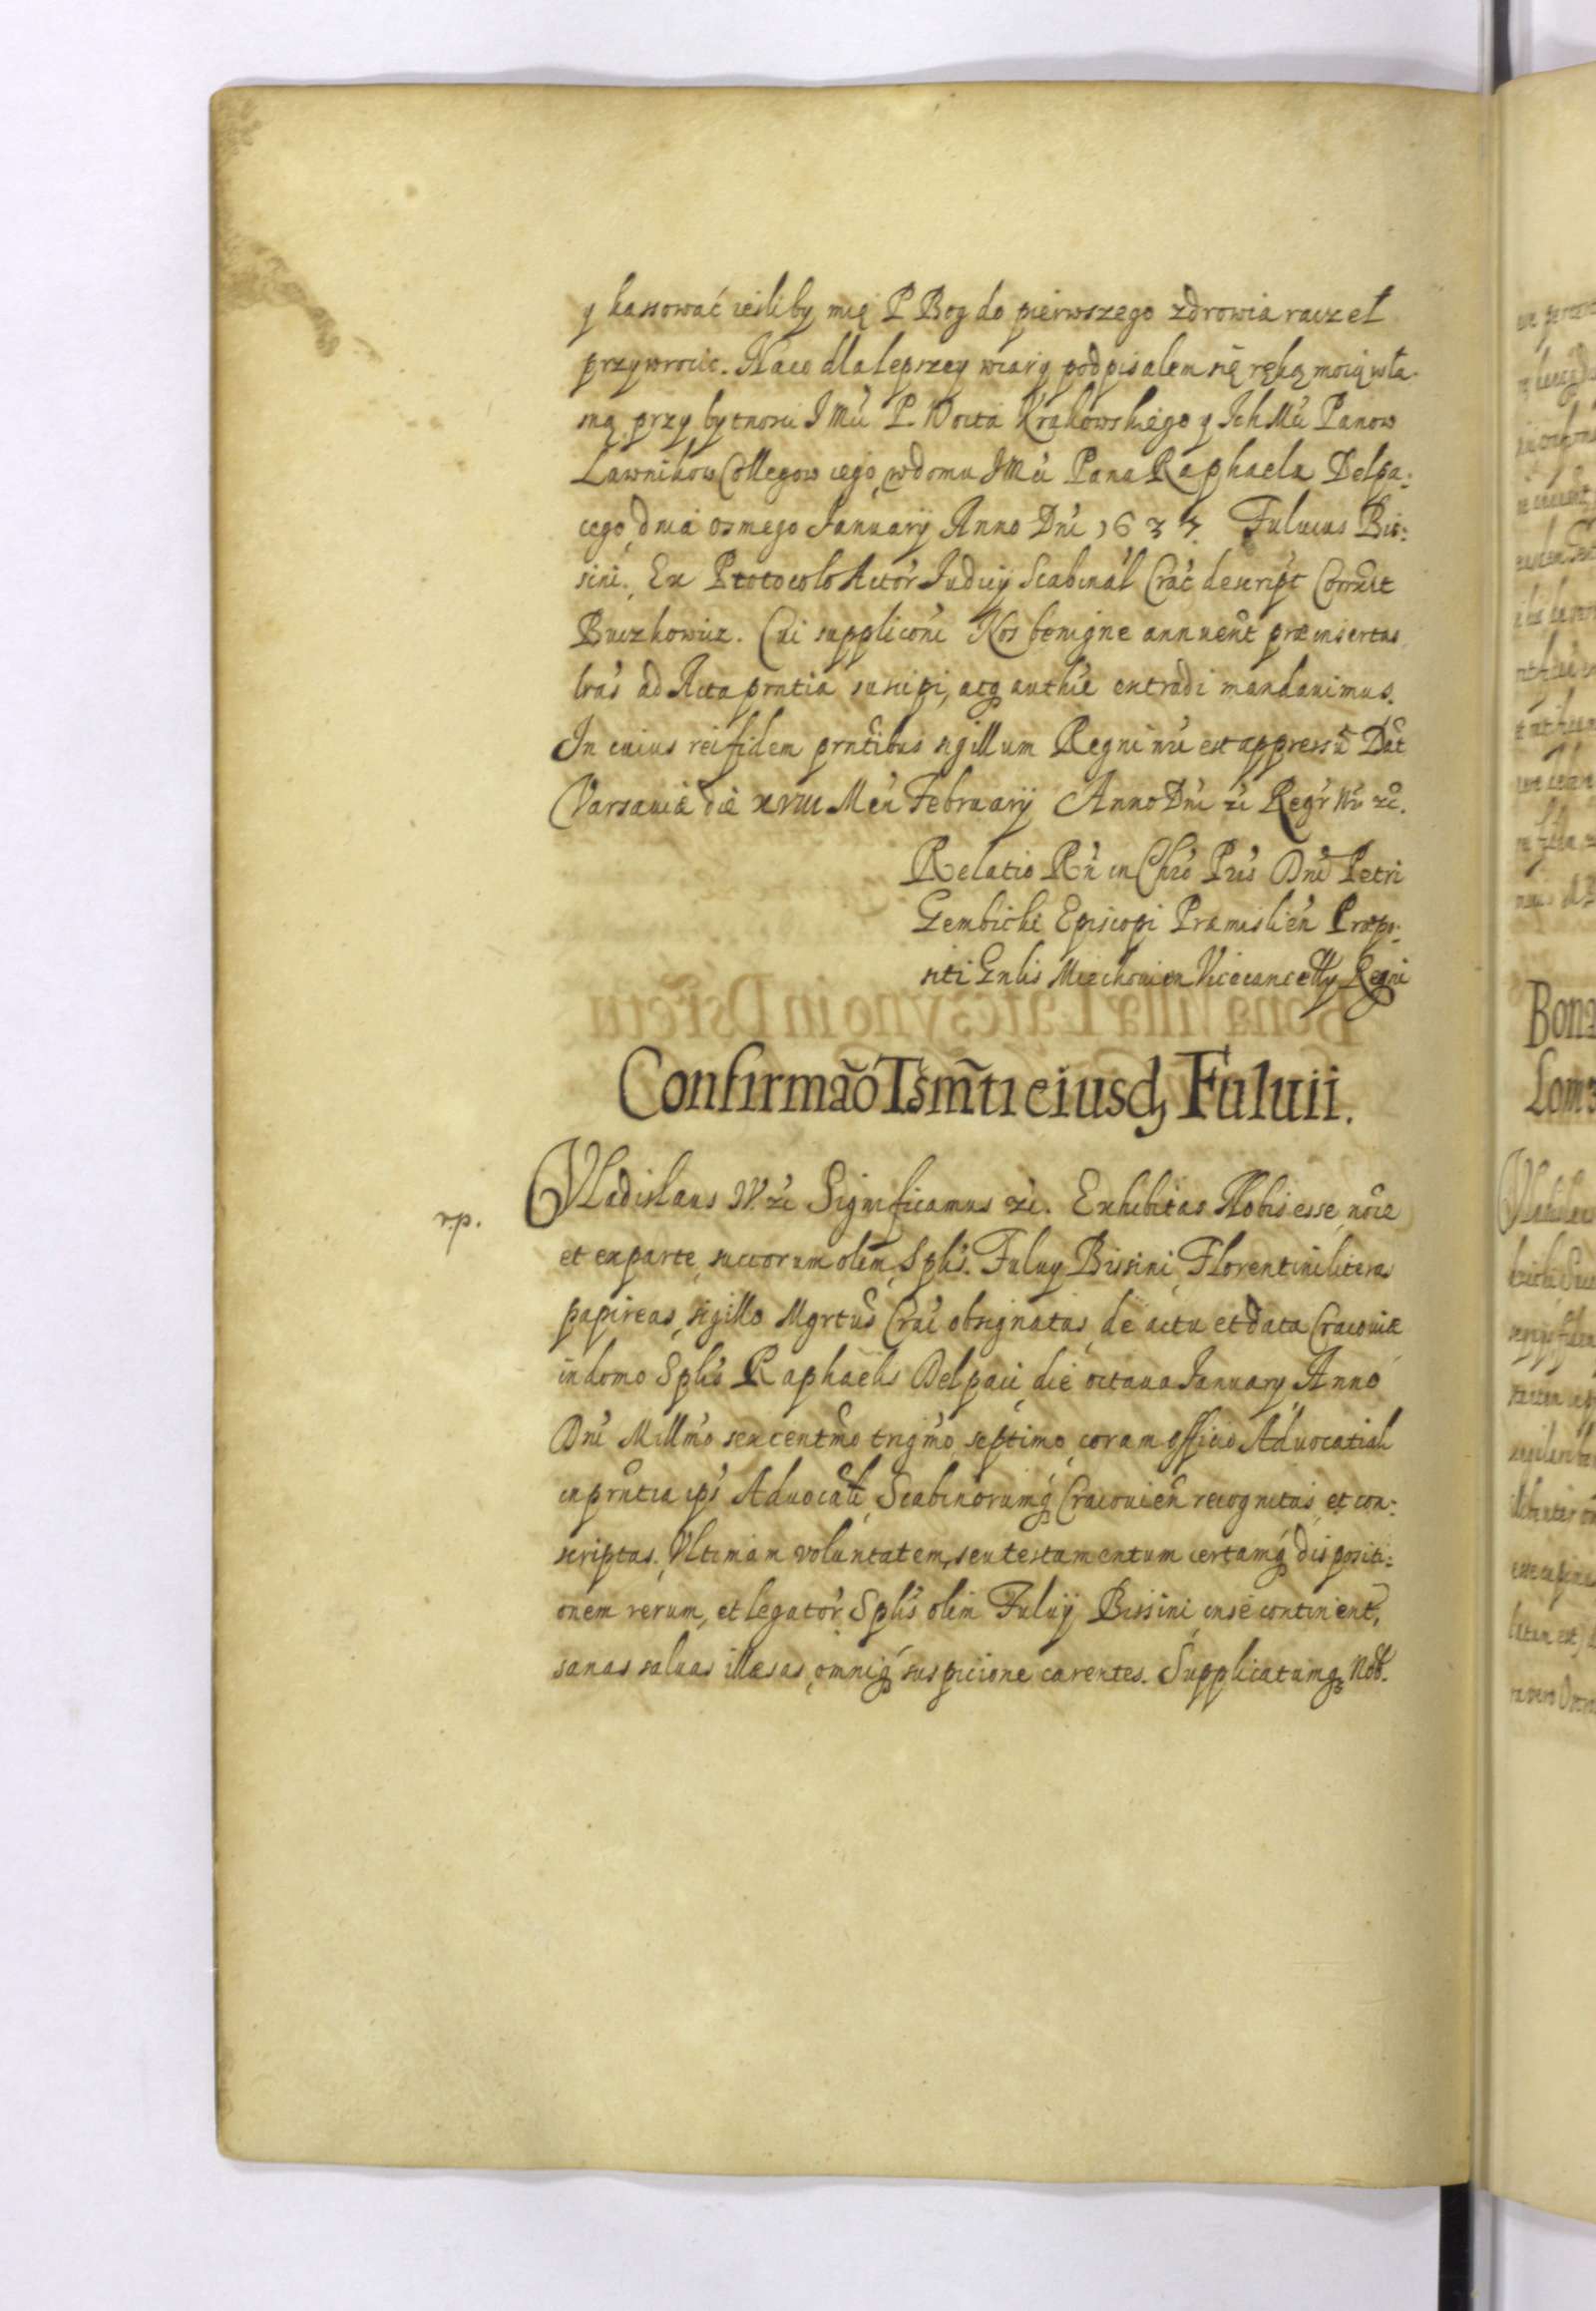 y kassować iesliby mię P Bog do pierwszego zdrowia raczeł
przywrocic. Naco dla lepszey wiary podpisalem się ręką moią wła-
sną przy bytnosci J Mci P. Woita Krakowskiego y Ich Mci Panow
Ławnikow Collegow iego w domu J Mci Pana Raphaela Delpa:
cego, dnia osmego Januarij Anno Dni 1637. Fuluius Bis:
sini. Ex Prothocolo Actor Judicij Scabinal Crac descript Correxit
Buczkowicz. Cui supplicõni Nos benigne annuent præinsertas
lras ad Acta pntia suscipi, atq authẽ extradi mandauimus.
In cuius rei fidem pntibus sigillum Regni nri est appressũ Dat
Varsauiæ die XVIII Men Februarij Anno Dni zc Regr Nr zc.
Relatio Rn in Chro Pris Dni Petri
Gembicki Episcopi Præmislien Præpo:
siti Gnlis Miechouien Vicecancellrij Regni
Confirmão Tsm̃ti eiusdȝ Fuluii.
rp.
Vladislaus IV. zc Significamus zc. Exhibitas Nobis esse, noie
et ex parte, succorum olim, Splis. Fuluij Bissini, Florentini literas
papireas, sigillo Mgrtus Crac obsignatas, de actu et data Cracouiæ
in domo Splis Raphaelis Delpaci, die octaua January, Anno
Dni Millmo sexcentmo trigmo septimo, coram officio Aduocatiali
in prntia ipsi Aduocati, Scabinorumq Cracouien recognitas et con:
scriptas. Vltimam voluntatem, seu testamentum certamq dispositi:
onem rerum, et legator Splis olim Fuluij Bissini, in se continent,
sanas saluas illæsas, omniq suspicione carentes. Supplicatumq Nob.